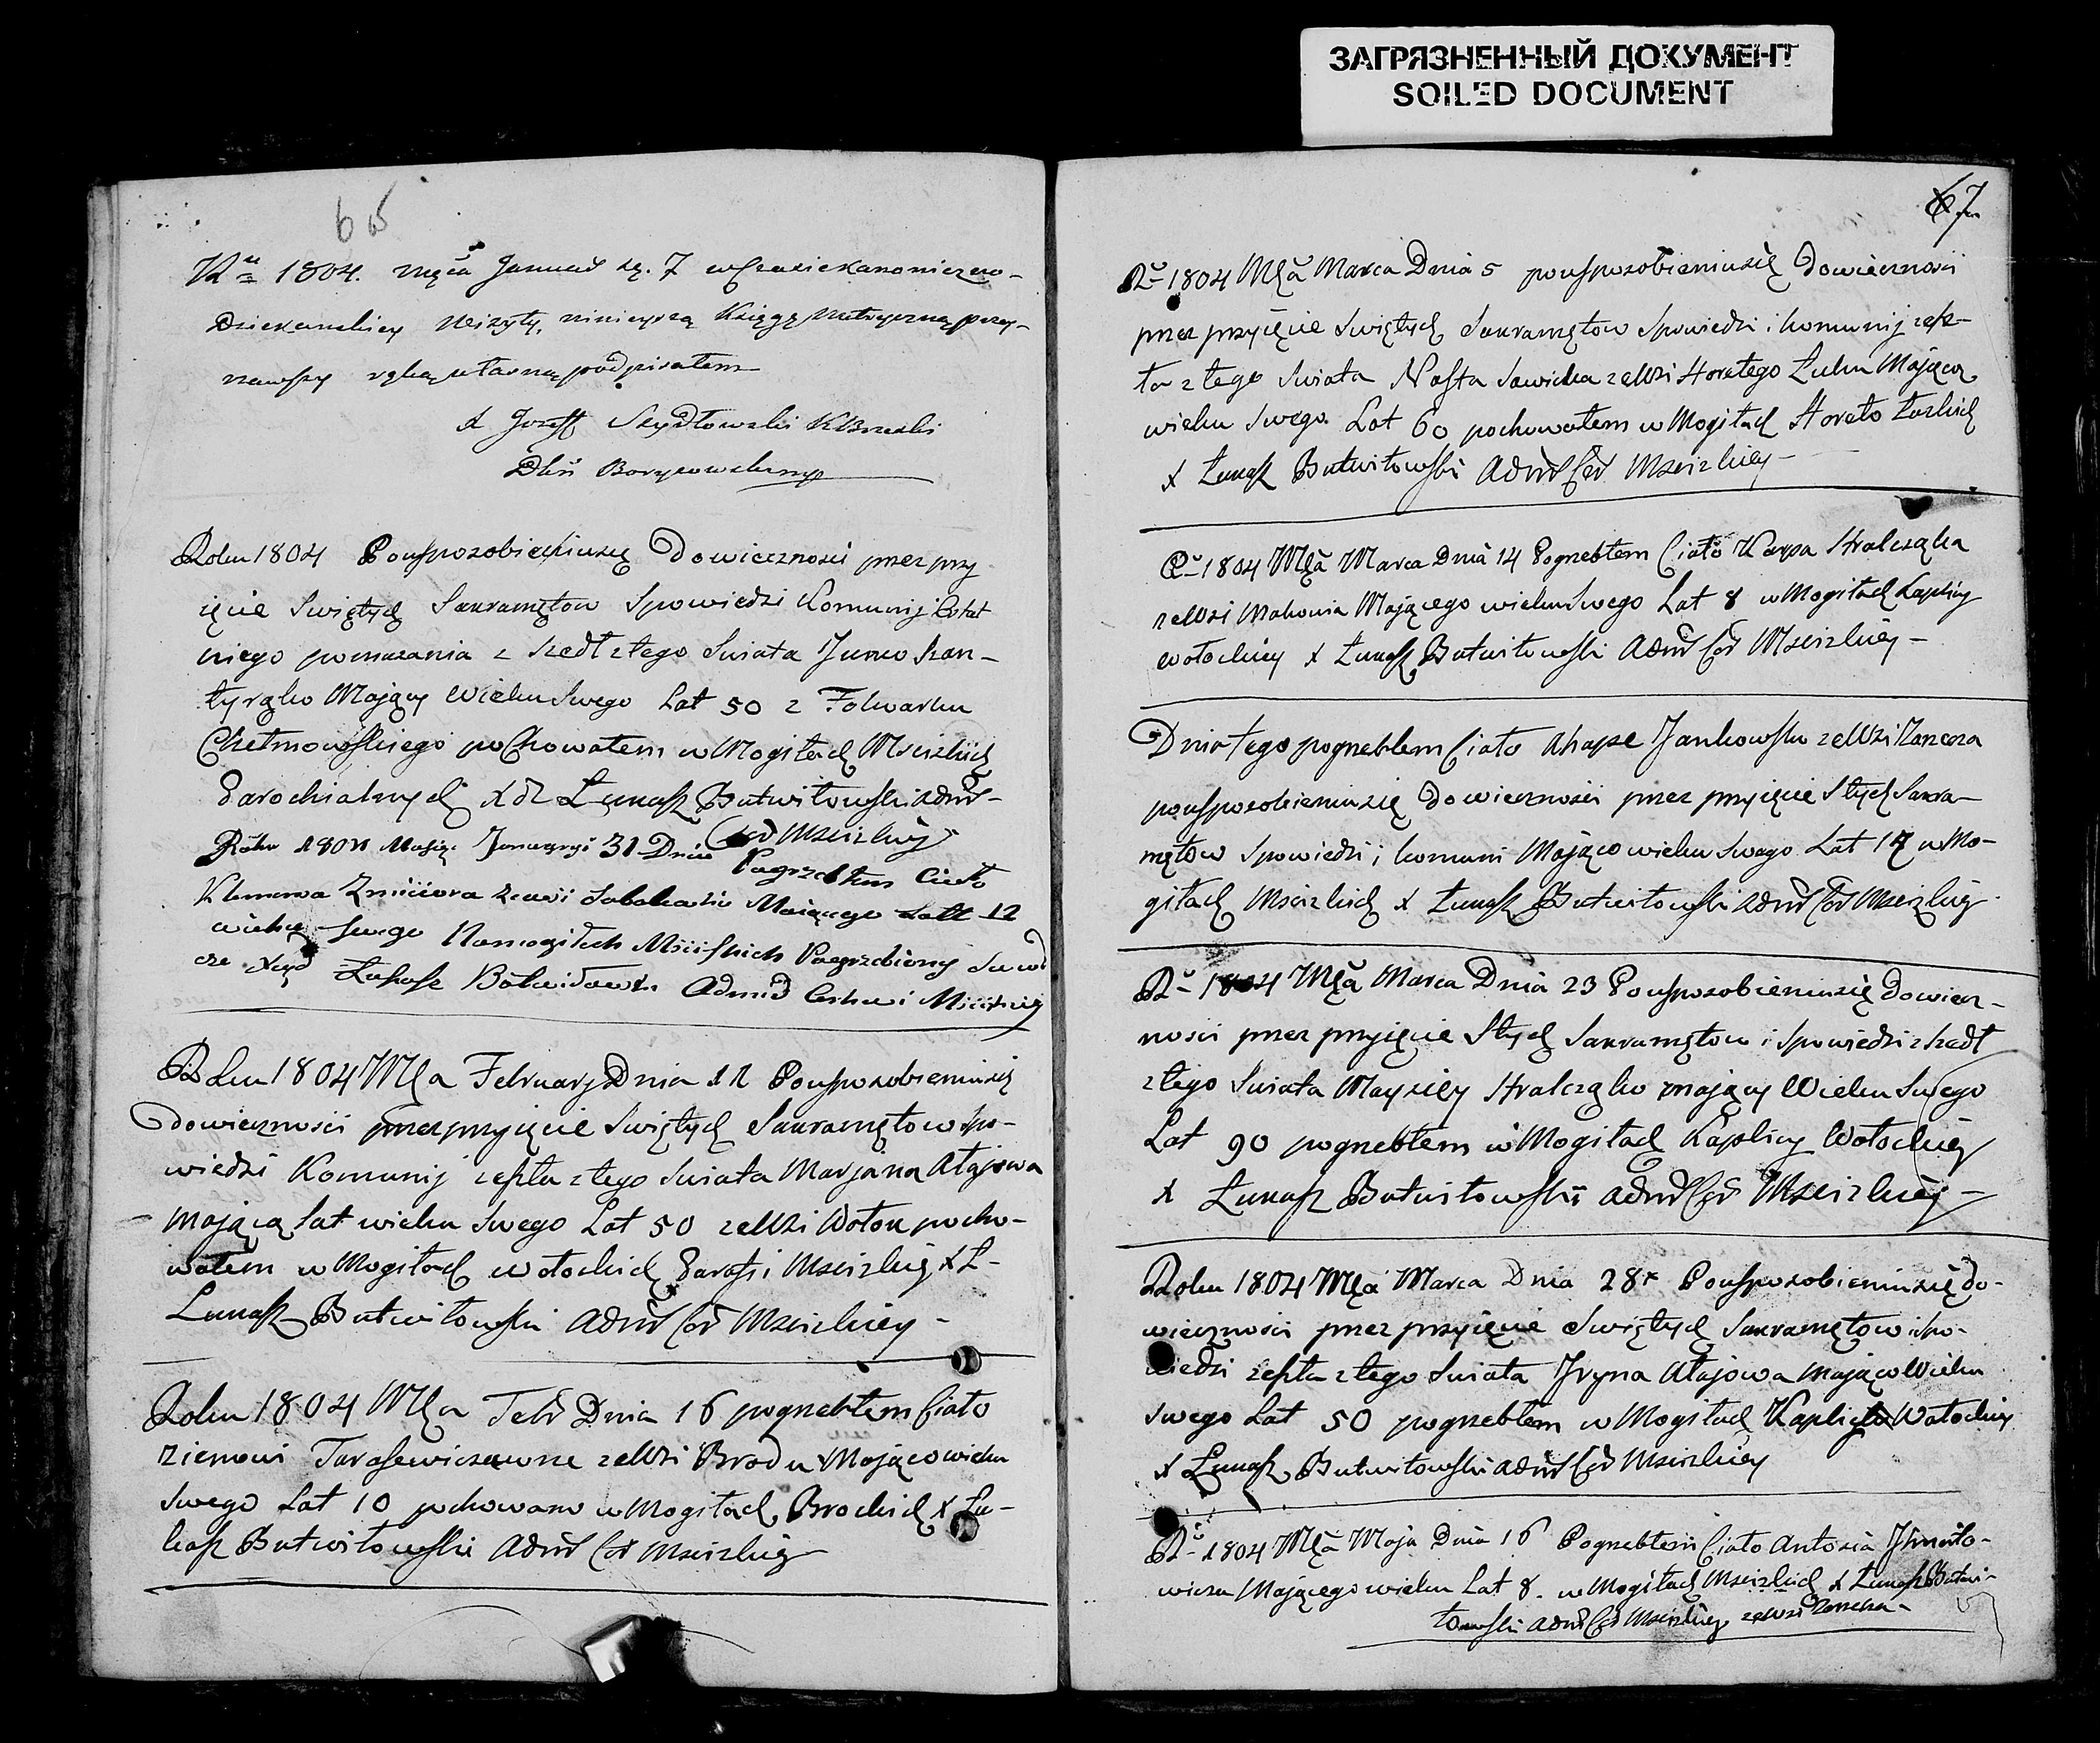 ЗАГРЯЗНЕННЫЙ ДОКУМЕНТ
SOILED DOCUMENT
65
Ru 1804. mca Januar 7 w Czasie kanoniczno-
Dziekanskiey Wizyty, ninieyszą Księgę Metryczną przey-
rzawszy ręką własną podpisałem
X Jozeff Szydłowski K Brzeski
Dkń Borysowski
Roku 1804 Pousposobieniusię Dowieczności przez przy
ięcie Swiętych Sakramętow Spowiedzi Komunij Ostat
niego pomazania z szedł ztego Swiata Jurko Szan-
tyręko Mający Wieku Swego Lat 50 z Folwarku
Chełmowskiego pochowałem w Mogiłach Mscizkich
Parochialnych X Łukasz Butwiłowski Admr
Cer Mscizkiey
Roku 1804 Januaryi 31 Dnia Pagrzebłem Ciało
Klemensa Zmiciora zewsi Maiącego Latt 12
wieku swego Namogiłach Mścisskich Pagrzebiony
Xiąd Łukasz Butwiłowski Admin Cerkwi Mścisskiey
Roku 1804 Mca February Dnia 11 Pousposobieniusię
Dowieczności przez przyięcie Swiętych Sakramętow Spo-
wiedzi Komunij zeszła ztego Swiata Marjana Ałajowa
Mającą Lat wieku Swego Lat 50 zeWsi Wołok pocho-
wałem w Mogiłach wołockich Parafii Mscizkiey X Ł-
Łukasz Butwiłowski Admr Cer Mscizkiey -
Roku 1804 Mca Febr Dnia 16 pogrzebłem Ciało
Zienowi Tarasewiczewne zeWsi Brodu Mająco wieku
Swego Lat 10 pochowano w Mogiłach Brockich X Łu-
kasz Butwiłowski Admr Cer Mscizkiey
67
Ru 1804 Mca Marca Dnia 5 pousposobieniusię Dowieczności
przez przyięcie Swiętych Sakramętow Spowiedzi i komunij zesz-
ła ztego Swiata Nasta Sawicka zeWsi Horełego Ługu Mającą
wieku Swego Lat 60 pochowałem w Mogiłach Horeło
X Łukasz Butwiłowski Admr Cer Mscizkiey -
Ru 1804 Mca Marca Dnia 14 Pogrzebłem Ciało Karpa Hralczęka
zeWsi Mającego wieku Swego Lat 8 w Mogiłach Kaplicy
wołockiey X Łukasz Butwiłowski Admr Cer Mscizkiey -
Dnia tego pogrzebłem Ciało Ahape Jankowsku zeWsi
pousposobieniusię Dowieczności przez przyięcie Stych Sakra-
mętow Spowiedzi i komuni Mająco wieku Swego Lat w Mo-
giłach Mscizkich X Łukasz Butwiłowski Admr Cer Mscizkiey
Ru 1804 Mca Marca Dnia 23 Pousposobieniusię Dowiecz-
ności przez przyięcie Stych Sakramętow i Spowiedzi zszedł
ztego Swiata Maysiey Hralczęko mający Wieku Swego
Lat 90 pogrzebłem w Mogiłach Kaplicy Wołockiey
X Łukasz Butwiłowski Admr Cer Mscizkiey -
Roku 1804 Mca Marca Dnia 28 Pousposobieniusię Do-
wieczności przez przyięcie Swiętych Sakramętow i Spo-
wiedzi zeszła ztego Swiata Jryna Ałajowa mająco Wieku
Swego Lat 50 pogrzebłem w Mogiłach Kaplicy Wołockiey
X Łukasz Butwiłowski Admr Cer Mscizkiey
Ru 1804 Mca Maja Dnia 16 Pogrzebłem Ciało Antosia
wicza Mającego wieku Lat 8. w Mogiłach Mscizkich X Łukasz Butwi-
łowski Admr Cer Mscizkiey zeWsi